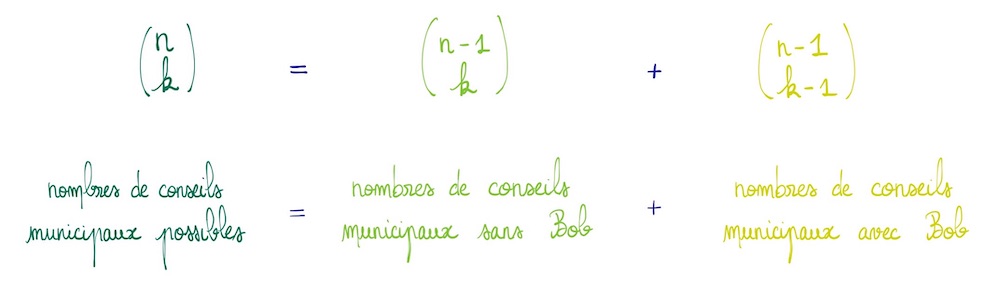 (n k) = (n-1 k) + (n-1 k-1)
nombres de conseils municipaux possibles = nombres de conseils municipaux sans Bob + nombres de conseils municipaux avec Bob